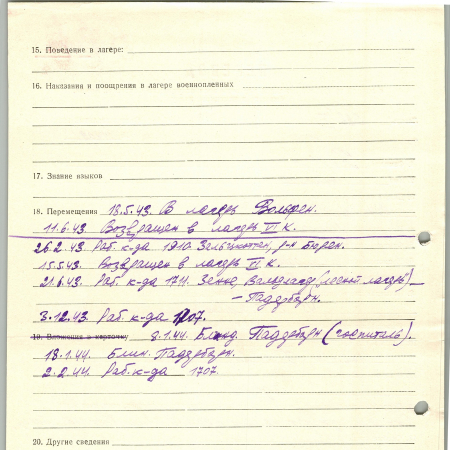 15. Поведение в лагере:
16. Наказания и поощрения в лагере военнопленных
17. Знание языков
18. Перемещения 18.5.43. В лагерь Вольфен.
11.6.43. Возвращен в лагерь VI К.
26.2.43 Раб. к-да 1910 р-н Бюрен.
15.5.43. Возвращен в лагерь VI К.
21.6.43. Раб. к-да 1711. Зенне, (лесной лагерь) –
– Падерборн.
3.12.43. Раб к-да 1707.
19. Вложения в карточку 8.1.44. Падерборн (госпиталь).
18.1.44. Падерборн.
2.2.44. Раб. к-да 1707
20. Другие сведения